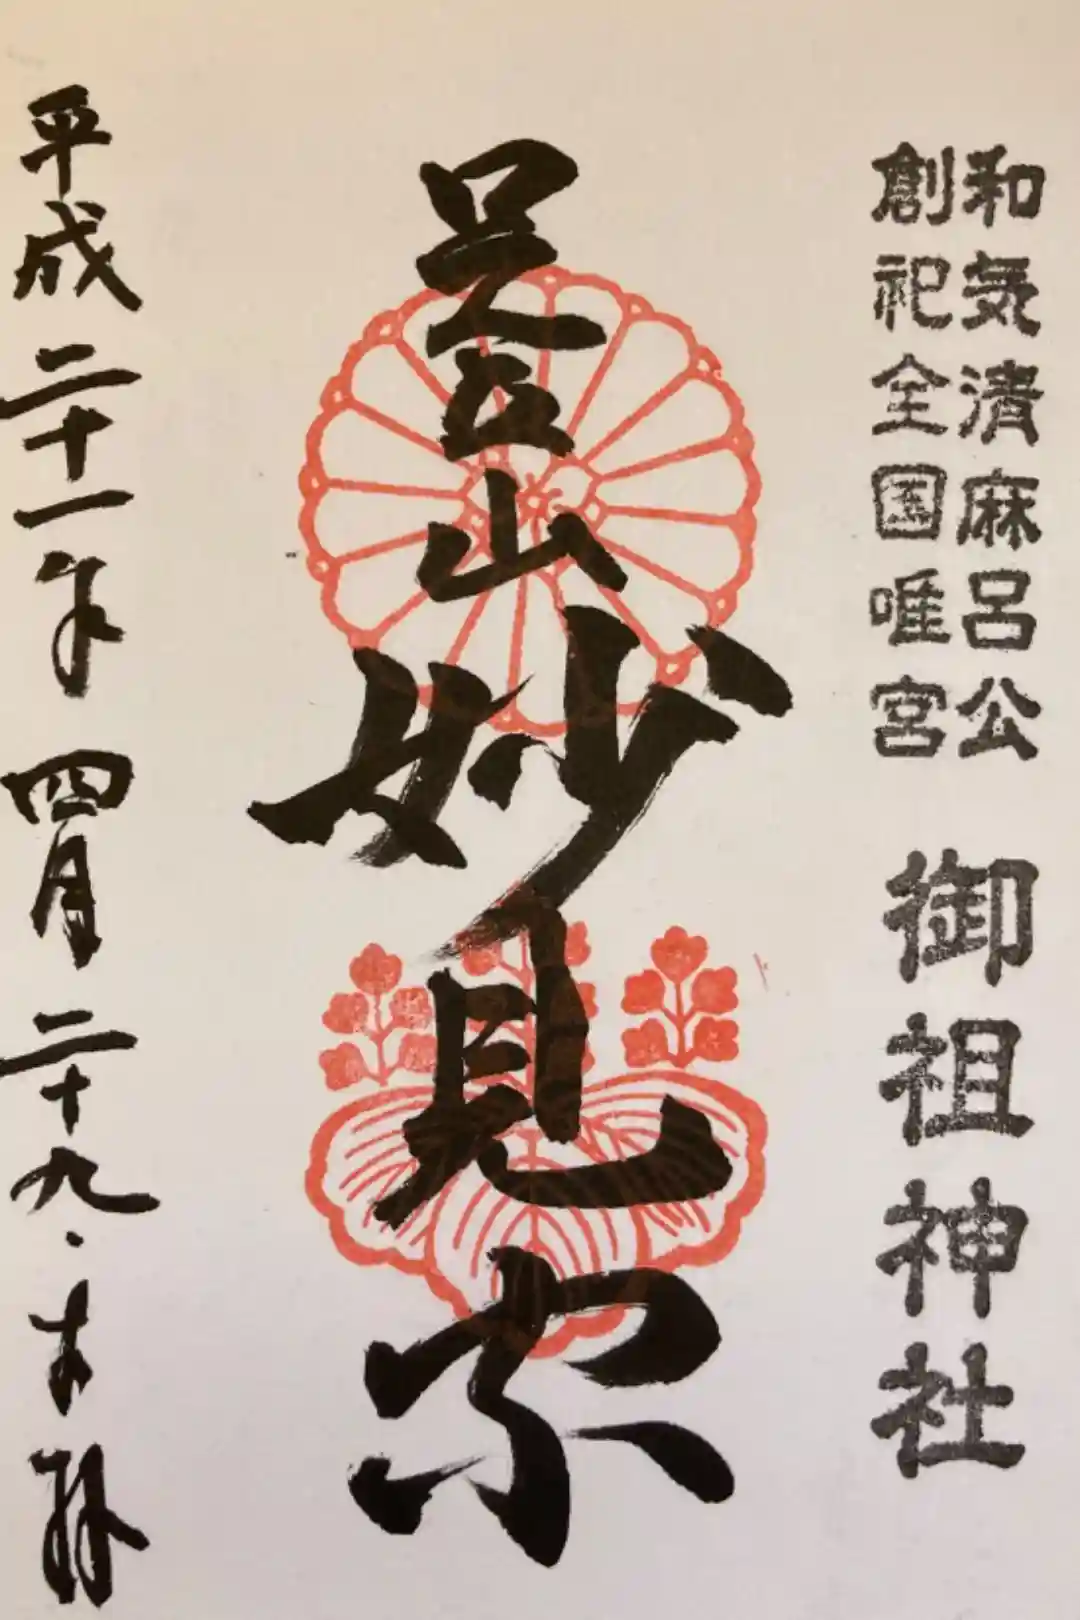 和気清麻呂公
創祀全国唯宮
御祖神社
足立山妙見宗
平成二十一年 四月 二十九日 奉拝